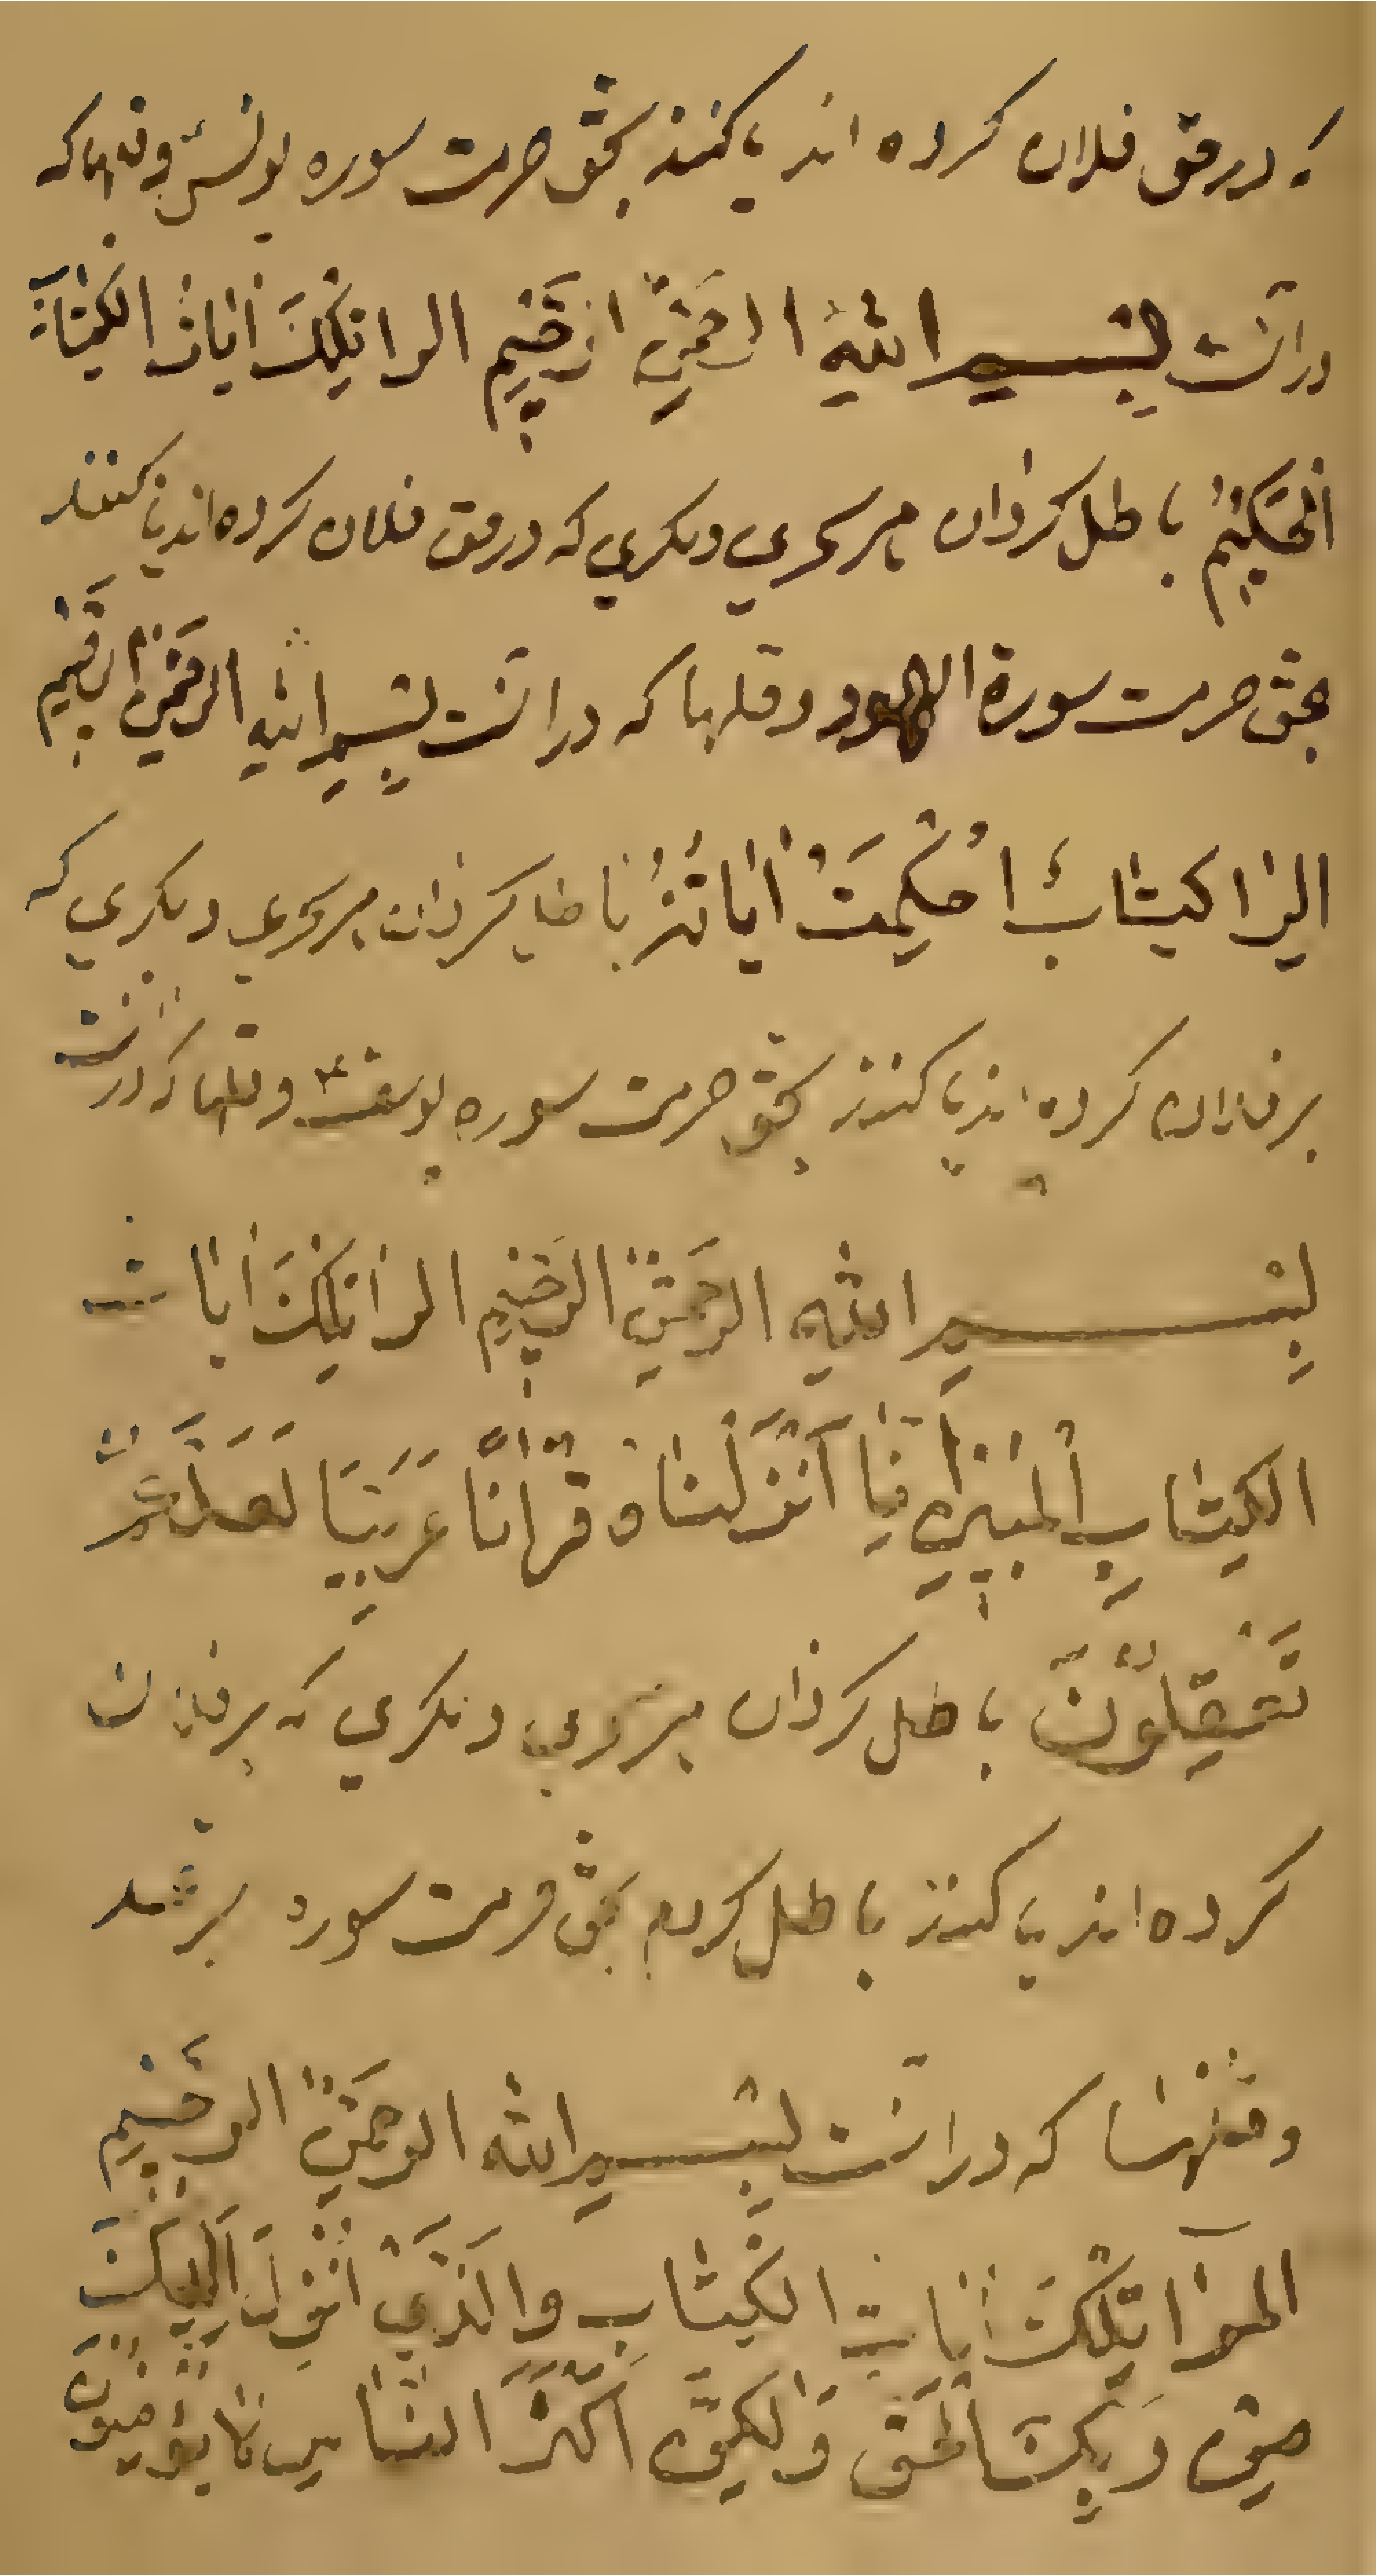 که در حق فلان کرده اند یا کنند بحق حرمت سوره یونس و قلها که
در انست بِسْمِ اللهِ الرَّحْمنِ الرَّحِیم الر تِلْكَ آیاتُ الْكِتابِ
الْحَكِیمُ باطل کردان هر سحری و مکری که در حق فلان کرده اند یا کنند
بحق حرمت سورة الهود و قلها که در انست بِسْمِ اللهِ الرحمنِ الرَّحِیم
الر كِتابٌ اُحْكِمَتْ آیاتُهُ باطل کردان هر سحری و مکری که
بر فلان کرده اند یا کنند بحق حرمت سوره یوسف و قلها که در انست
بِسْمِ اللهِ الرَّحْمنِ الرَّحِیم الر تِلْكَ آیاتُ
الكِتابِ الْمُبِینِ اِنّا اَنْزَلْناهُ قُرْآنًا عَرَبِیًّا لَعَلَّكُمْ
تَعْقِلُوْنَ باطل کردان هر سحری و مکری که بر فلان
کرده اند یا کنند باطل کردم بحق حرمت سوره رعد
و قلها که در انست بِسْمِ الله الرحمنِ الرحِیم
المر تِلْكَ آیاتُ الكِتابِ وَالَّذِي اُنْزِلَ اِلَیْكَ
مِنْ رَبِّكَ الْحَقّ وَلكِنَّ اَكْثَرَ النّاسِ لا یُؤْمِنُونَ